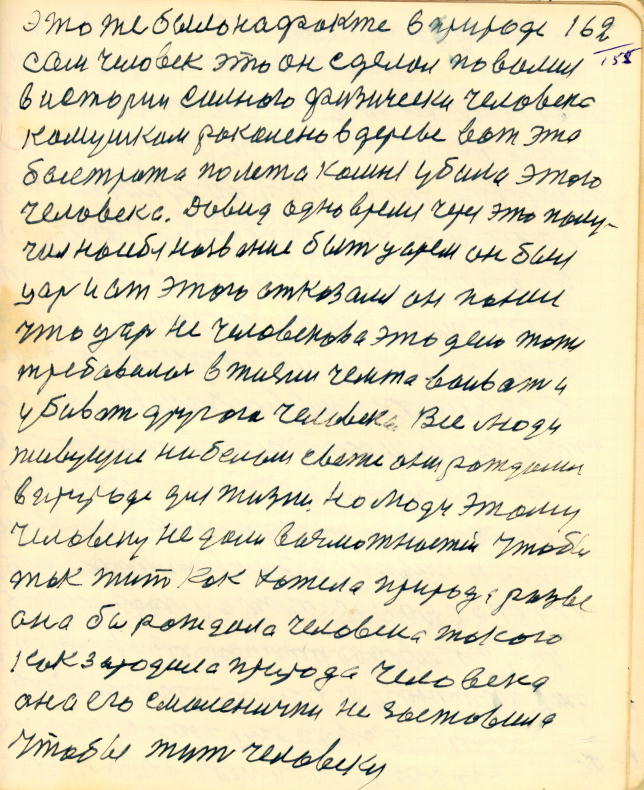 это же было на факте в природе 162
сам человек это он сделал повалил 155
в истории силного физически человека
камушком рокомено в дереве вот эта
быстрота полета камня убила этого
человека. Довид одно время через это полу-
чил на себя название быть царем он был
цар и от этого отказался он понял
что цар не человекова это дело там
требовалос в жизни чемта воеват и
убиват другого человека. Все люди
живущие на белом свете они рождоны
в природе для жизни. но люди этому
человеку не дали возможностей чтобы
так жит как хотела природа, разве
она бы рождала человека такого
как зародила природа человека
она его смоленички не заставила
чтобы жит человеку